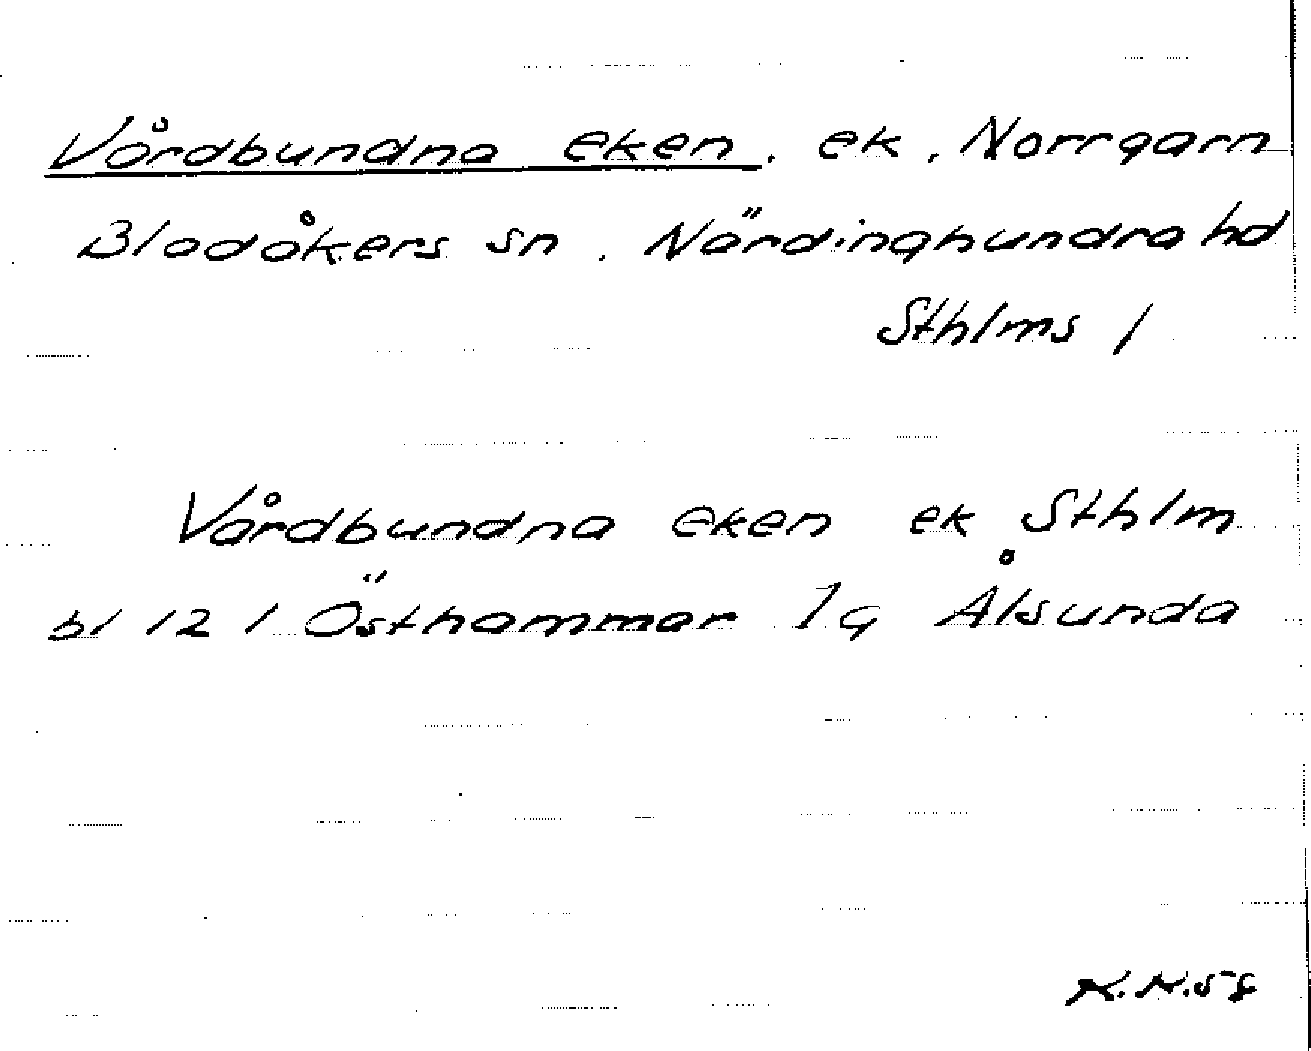 Vårdbundna eken, ek, Norrgarn
Bladåkers sn, Närdinghundra hd
Sthlms l
Vårdbundna eken ek Sthlm
bl 12 l Östhammar lg Ålsunda
K.H.58